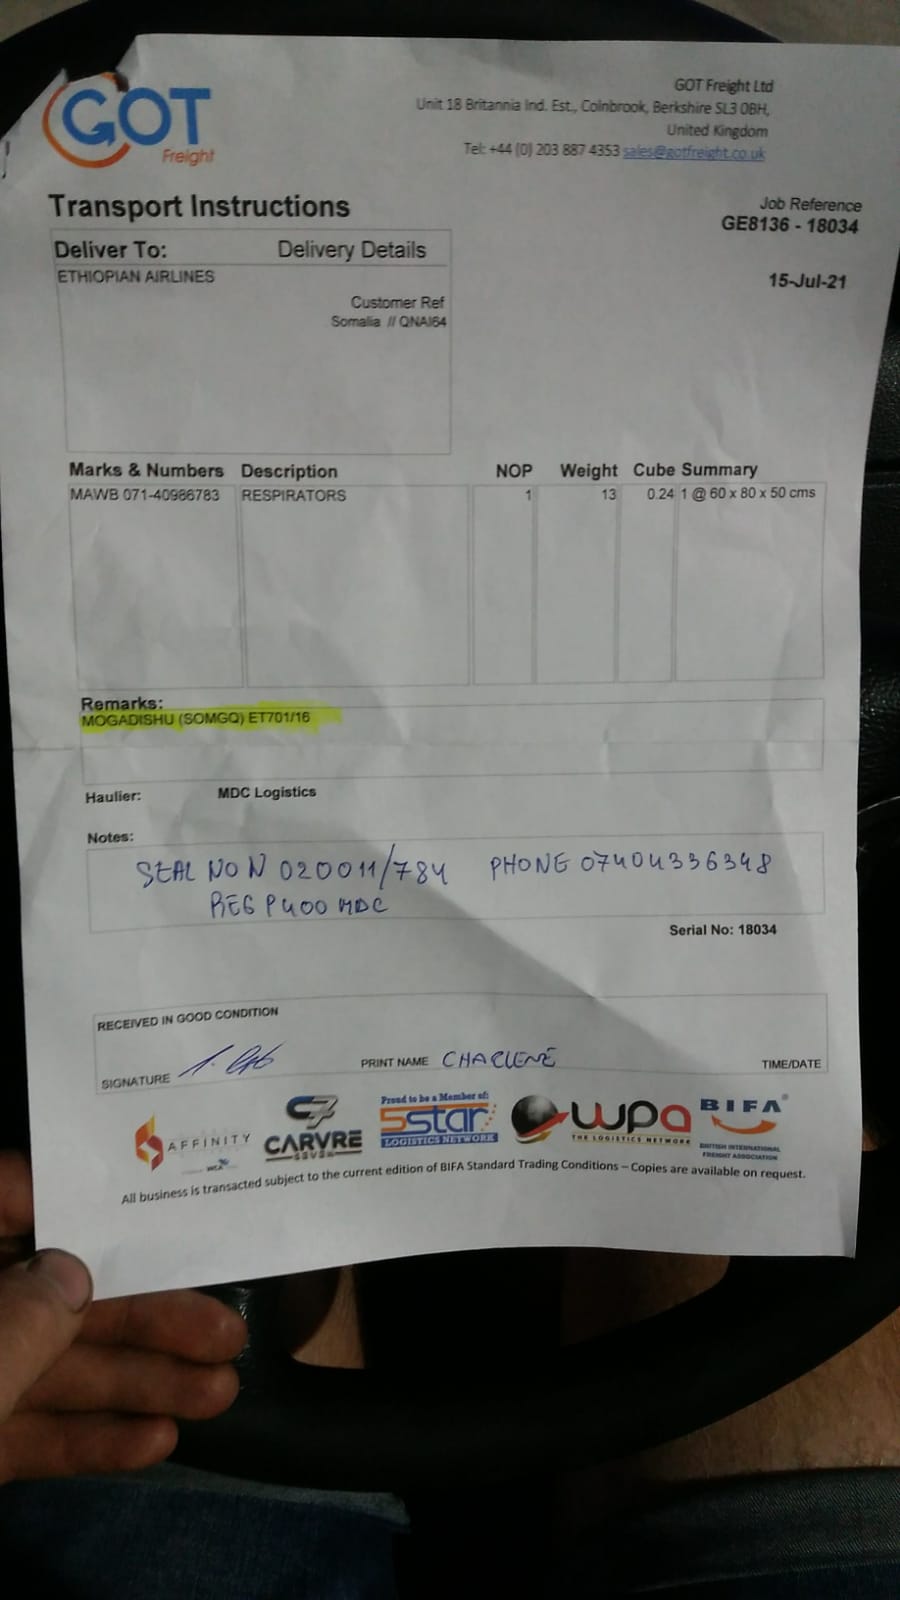 GOT
Freight
GOT Freight Ltd
Unit 18 Britannia Ind. Est., Colnbrook, Berkshire SL3 0BH,
United Kingdom
Tel: +44 (0) 203 887 4353 sales@gotfreight.co.uk
Transport Instructions
Job Reference
GE8136 - 18034
15-Jul-21
Deliver To: Delivery Details
ETHIOPIAN AIRLINES
Customer Ref
Somalia // QNAI64
Marks & Numbers Description NOP Weight Cube Summary
MAWB 071-40986783 RESPIRATORS 1 13 0.24 1 @ 60 x 80 x 50 cms
Remarks:
MOGADISHU (SOMGQ) ET701/16
Haulier: MDC Logistics
Notes:
SEAL NO N 020011/784 PHONE 07404336348
REG P400 MDC
Serial No: 18034
RECEIVED IN GOOD CONDITION
SIGNATURE PRINT NAME CHARLENE TIME/DATE
AFFINITY
C7
CARVRE
SEVEN
Proud to be a Member of:
5star
LOGISTICS NETWORK
wpa
THE LOGISTICS NETWORK
BIFA
BRITISH INTERNATIONAL
FREIGHT ASSOCIATION
All business is transacted subject to the current edition of BIFA Standard Trading Conditions – Copies are available on request.